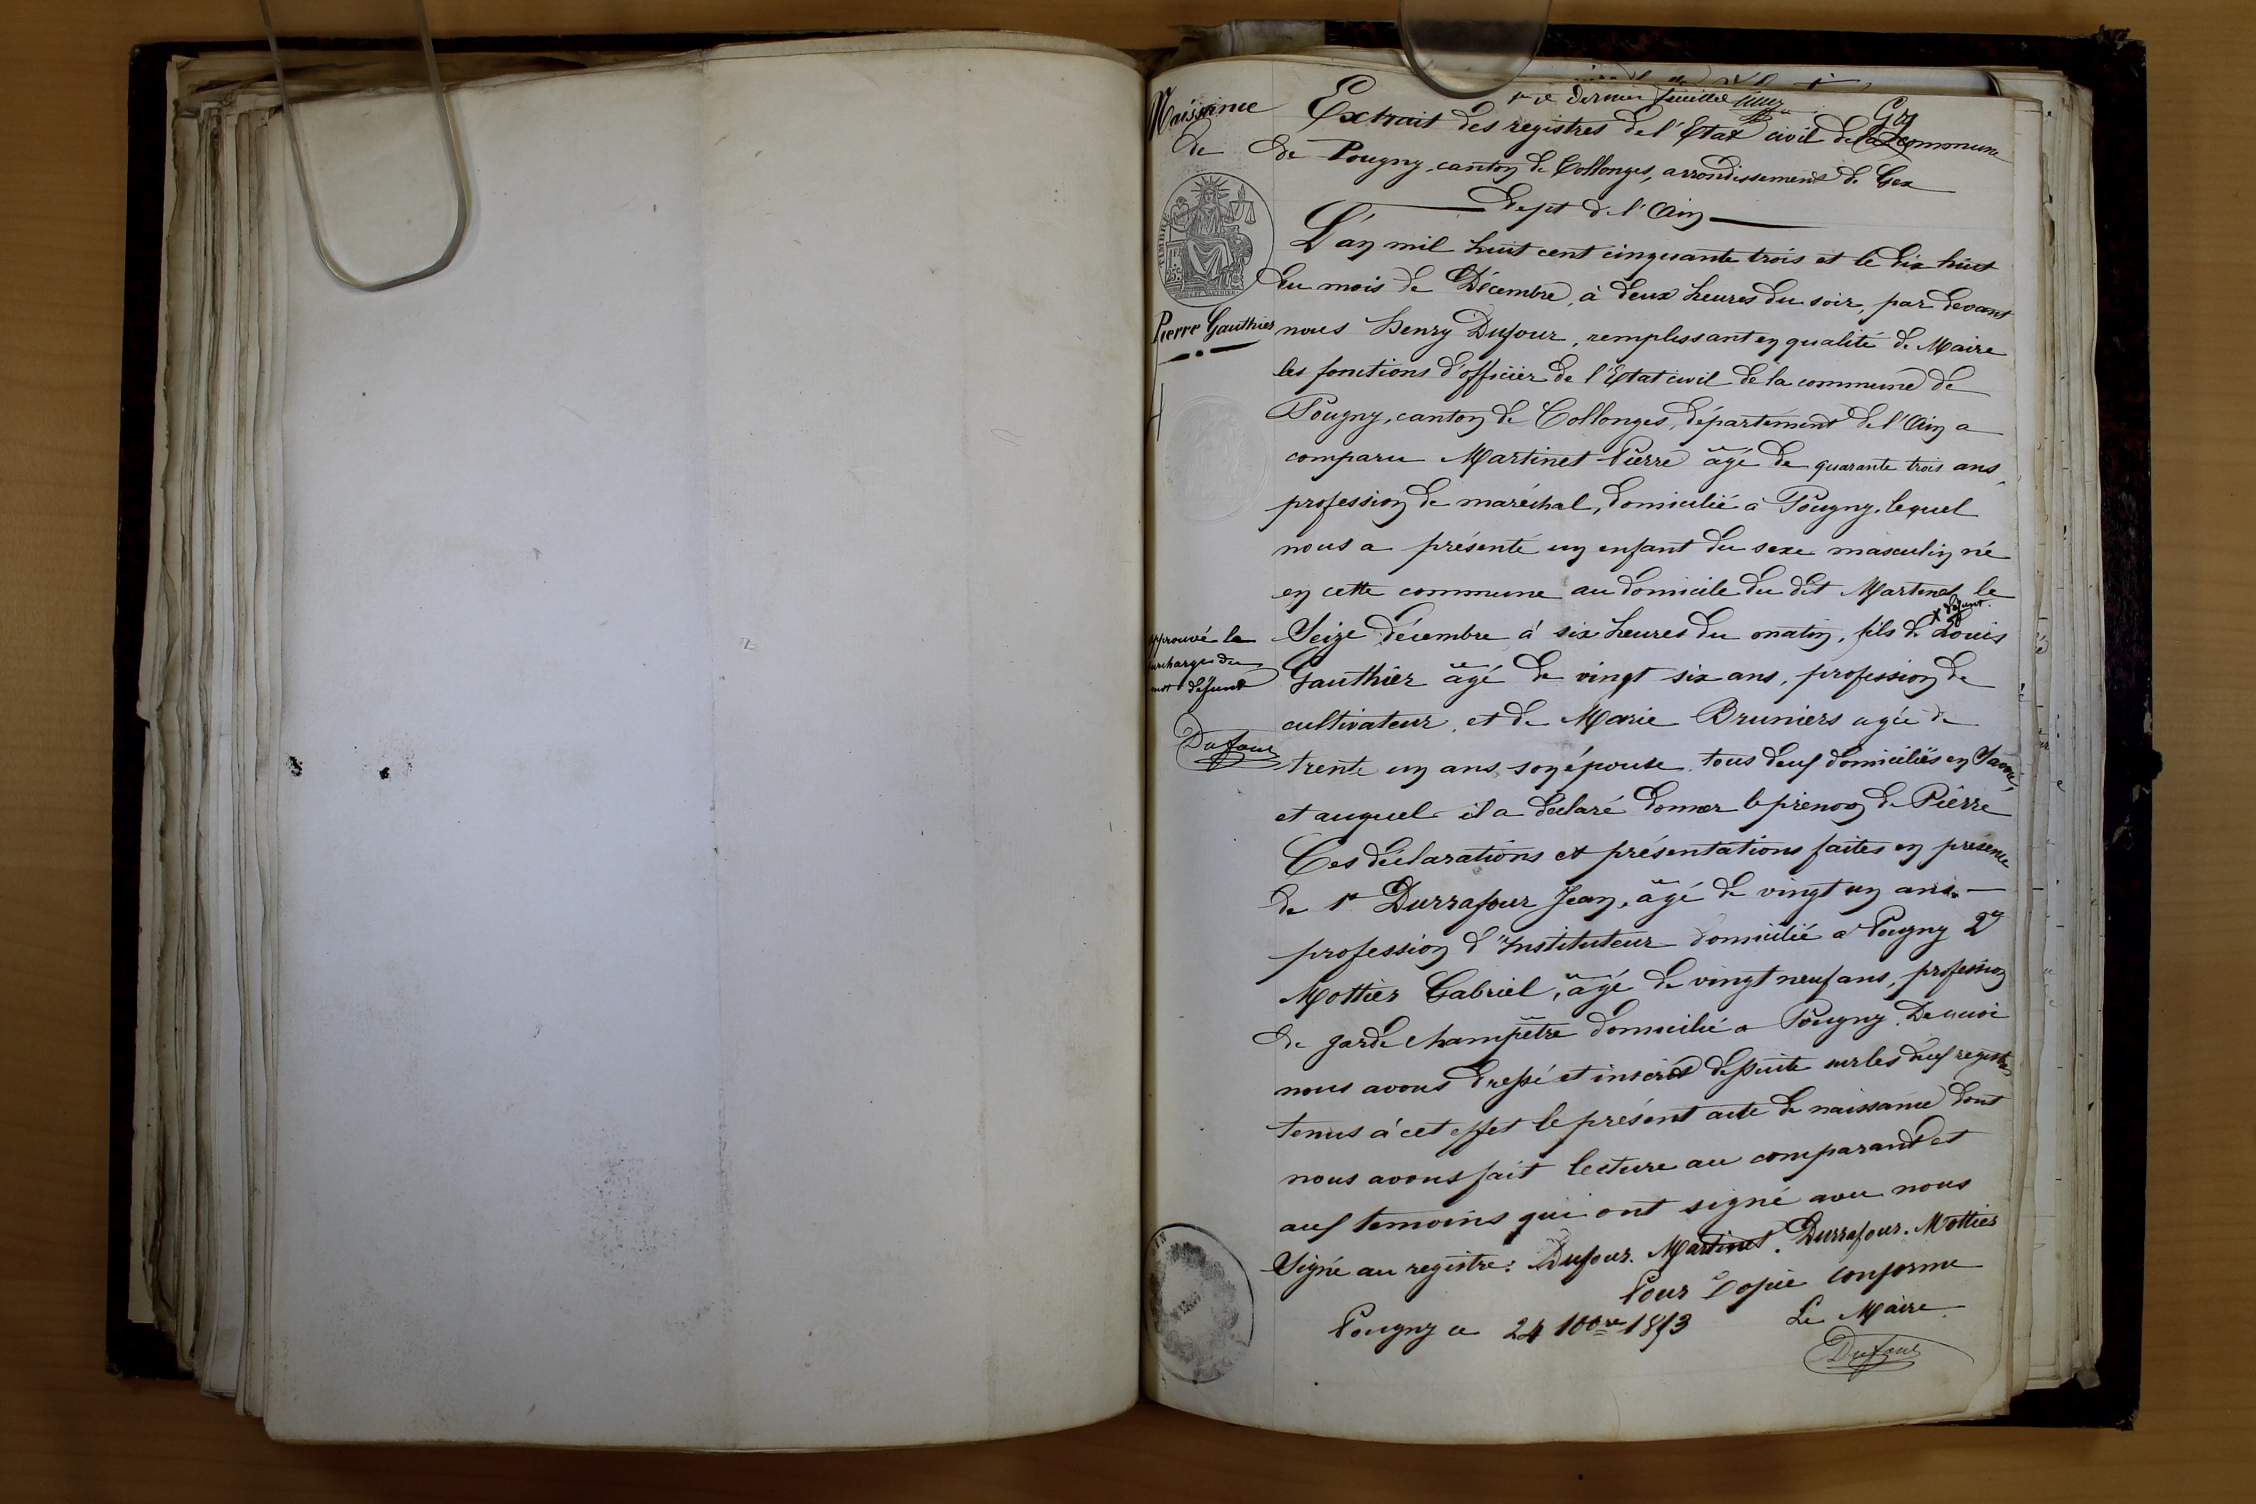 Naissance
de
Pierre Gauthier
approuvé la
surcharge du
mot défunt
Dufour
dernier feuillet
Extrait des registres de l'Etat civil de la commune
de Pougny, canton de Collonges, arrondissement de Gex
Dept de l'Ain
L'an mil huit cent cinquante trois et le dix huit
du mois de Décembre, à deux heures du soir, par devant
nous Henry Dufour, remplissant en qualité de Maire
les fonctions d'officier de l'Etat civil de la commune de
Pougny, canton de Collonges, département de l'Ain a
comparu Martinet Pierre âgé de quarante trois ans,
profession de maréchal, domicilié à Pougny, lequel
nous a présenté un enfant du sexe masculin né
en cette commune au domicile du dit Martinet le
x défunt
Seize décembre à six heures du matin, fils de x Louis
Gauthier âgé de vingt six ans, profession de
cultivateur, et de Marie Bruniers agée de
trente un ans son épouse, tous deux domiciliés en Savoie,
et auquel il a déclaré donner le prénom de Pierre
Ces déclarations et présentations faites en présence
de 1er Durrafour Jean, âgé de vingt un ans.
profession d'Instituteur domicilié à Pougny 2e
Mottier Gabriel, âgé de vingt neuf ans, profession
de garde champêtre domicilié à Pougny. De quoi
nous avons dressé et inscrit desuite sur les deux registres
tenus à cet effet le présent acte de naissance dont
nous avons fait lecture au comparant et
aux temoins qui ont signé avec nous
Signé au registre: Dufour. Martinet. Durrafour. Mottier
Pour Copie conforme
Pougny ce 24 10bre 1853 Le Maire
Dufour